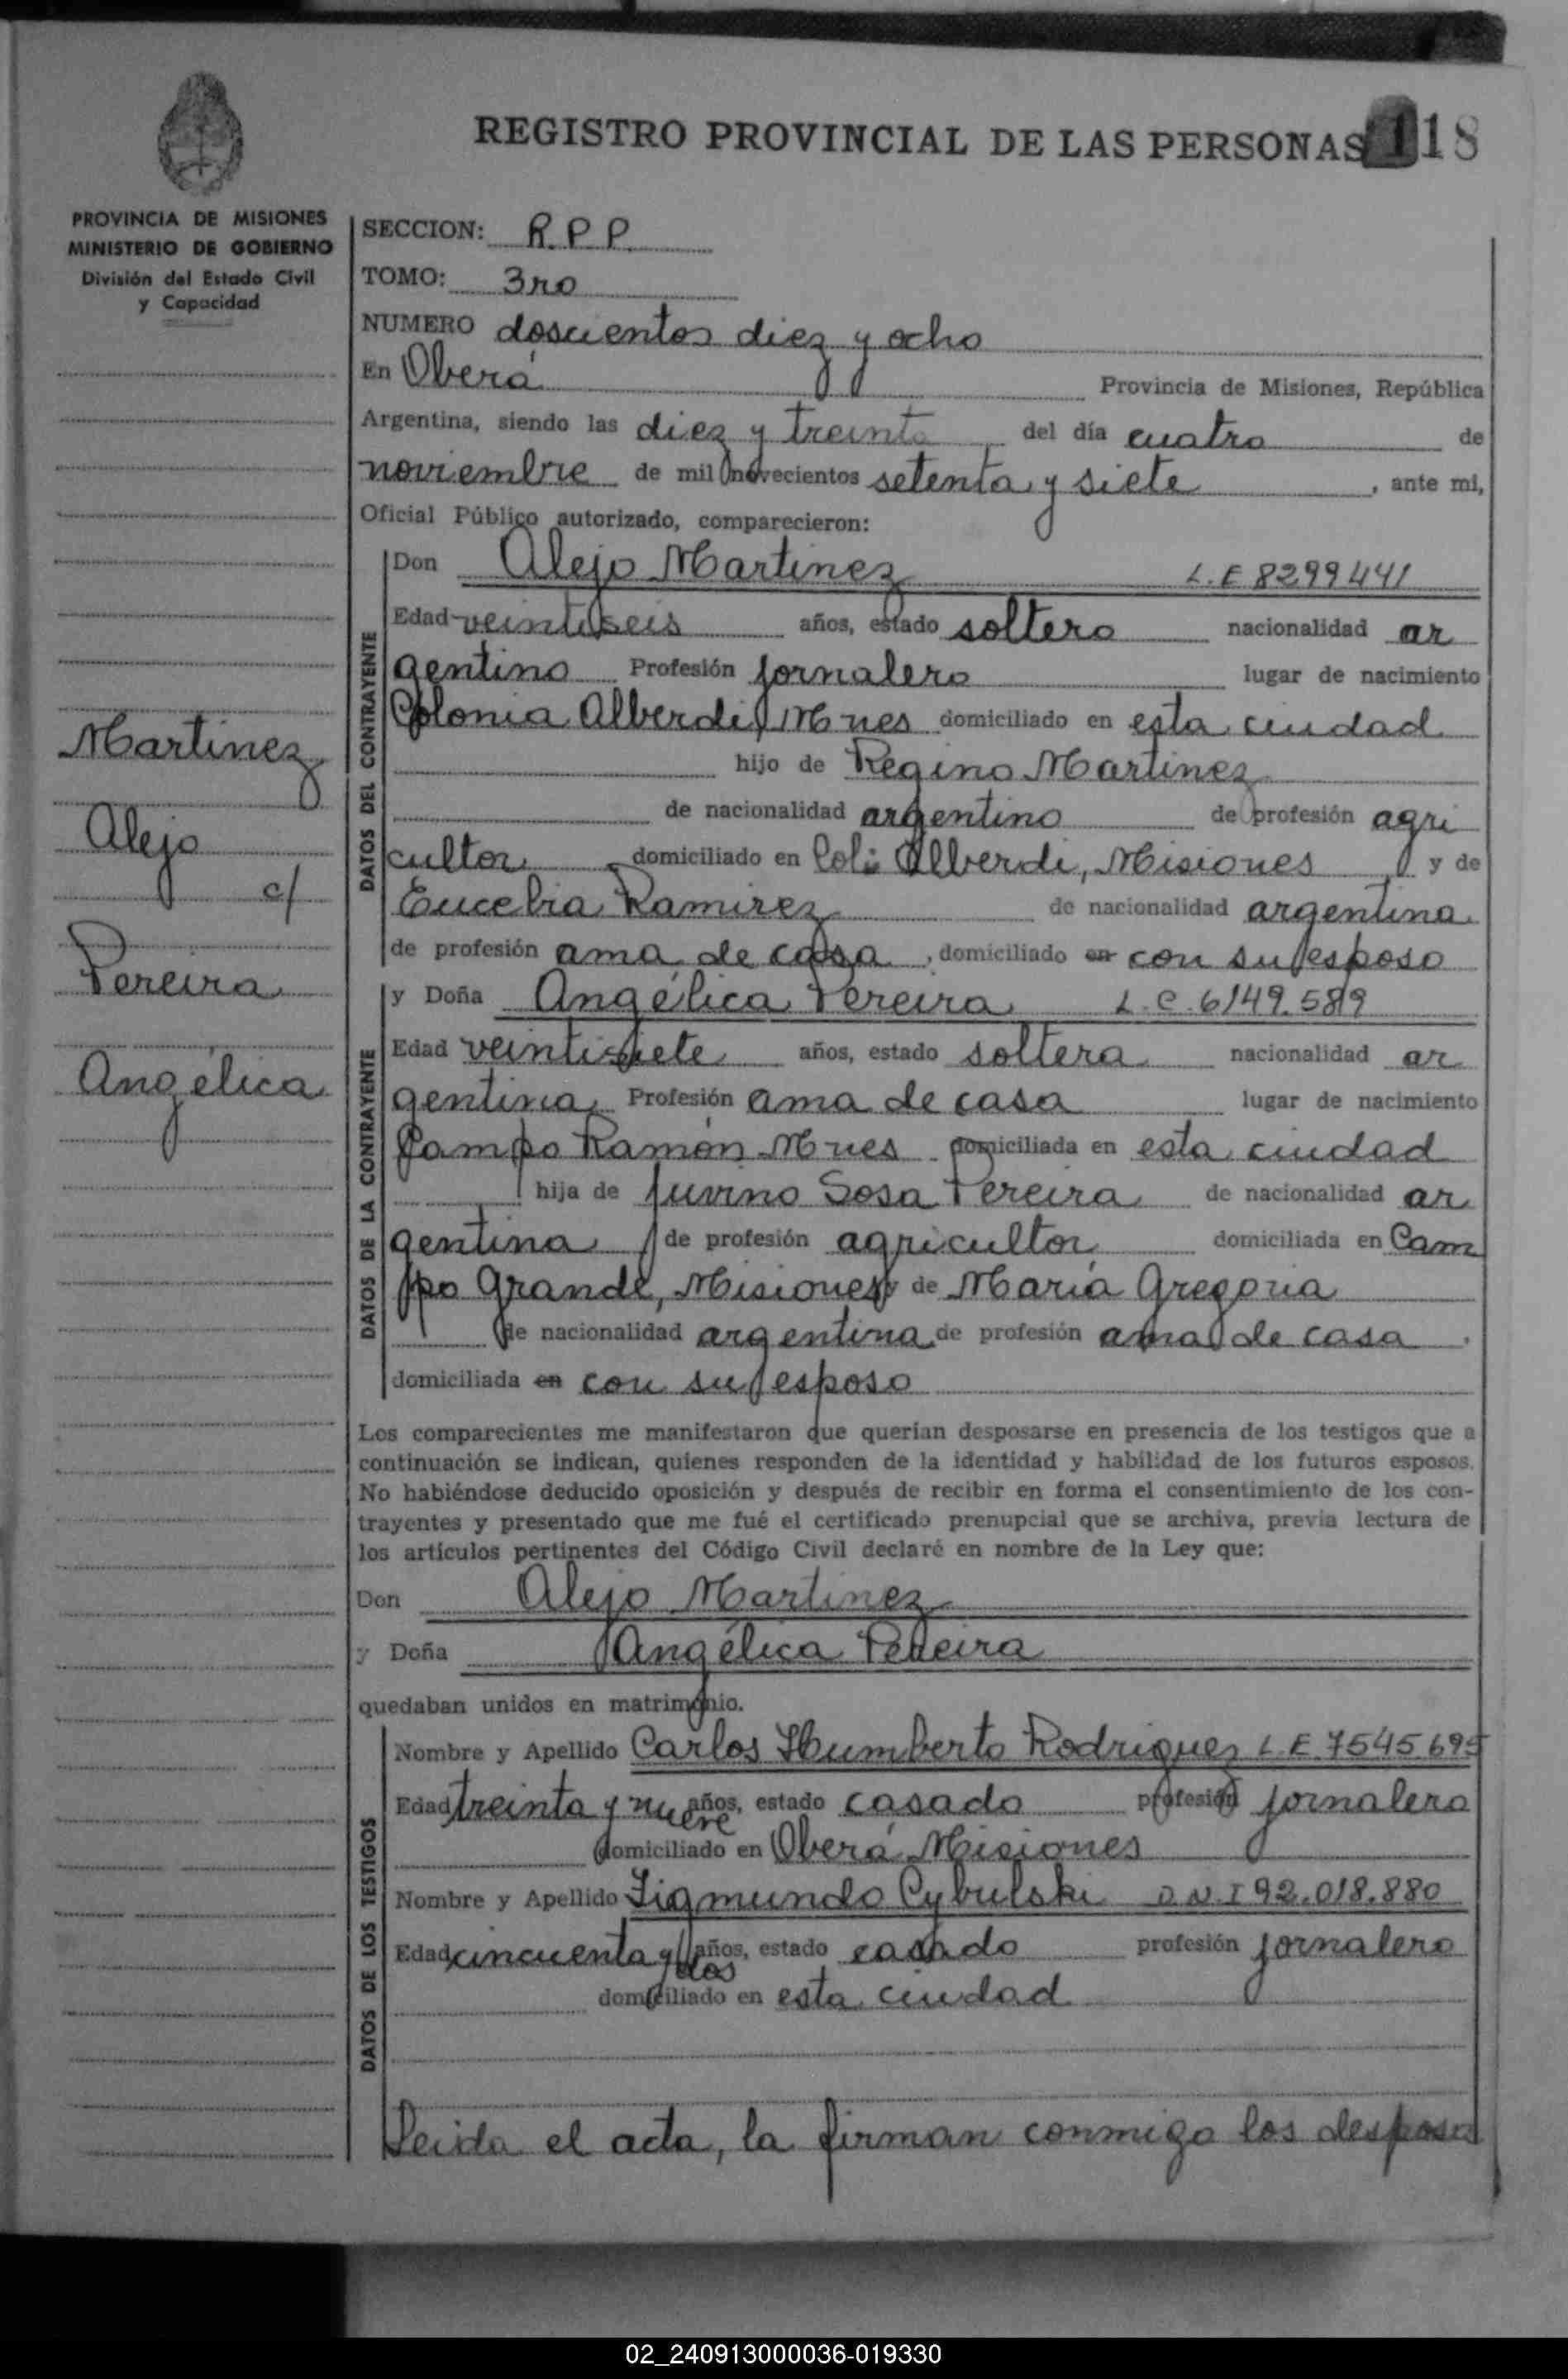 REGISTRO PROVINCIAL DE LAS PERSONAS 118
PROVINCIA DE MISIONES
MINISTERIO DE GOBIERNO
División del Estado Civil
y Capacidad
Martinez
Alejo
c/
Pereira
Angélica
SECCION: R.P.P.
TOMO: 3ro
NUMERO doscientos diez y ocho
En Oberá Provincia de Misiones, República
Argentina, siendo las diez y treinta del día cuatro de
noviembre de mil novecientos setenta y siete, ante mi,
Oficial Público autorizado, comparecieron:
DATOS DEL CONTRAYENTE
Don Alejo Martinez L.E 8299441
Edad veintiseis años, estado soltero nacionalidad ar
gentino Profesión jornalero lugar de nacimiento
Colonia Alberdi, Mnes domiciliado en esta ciudad
hijo de Regino Martinez
de nacionalidad argentino de profesión agri
cultor domiciliado en Col. Alberdi, Misiones y de
Eucebia Ramirez de nacionalidad argentina
de profesión ama de casa, domiciliado en con su esposo
DATOS DE LA CONTRAYENTE
y Doña Angélica Pereira L.C. 6149.589
Edad veintisiete años, estado soltera nacionalidad ar
gentina, Profesión ama de casa lugar de nacimiento
Campo Ramón Mnes domiciliada en esta ciudad
hija de Juvino Sosa Pereira de nacionalidad ar
gentina de profesión agricultor domiciliada en Cam
po Grande, Misiones y de María Gregoria
de nacionalidad argentina de profesión ama de casa.
domiciliada en con su esposo
Los comparecientes me manifestaron que querían desposarse en presencia de los testigos que a
continuación se indican, quienes responden de la identidad y habilidad de los futuros esposos.
No habiéndose deducido oposición y después de recibir en forma el consentimiento de los con-
trayentes y presentado que me fué el certificado prenupcial que se archiva, previa lectura de
los artículos pertinentes del Código Civil declaré en nombre de la Ley que:
Don Alejo Martinez
y Doña Angélica Pereira
quedaban unidos en matrimonio.
DATOS DE LOS TESTIGOS
Nombre y Apellido Carlos Humberto Rodriguez L.E. 7545695
Edad treinta y nueve años, estado casado profesión jornalero
domiciliado en Oberá Misiones
Nombre y Apellido Zigmundo Cybulski D.N.I 92.018.880
Edad cincuenta y dos años, estado casado profesión jornalero
domiciliado en esta ciudad
Leida el acta, la firman conmigo los desposa
02_240913000036-019330